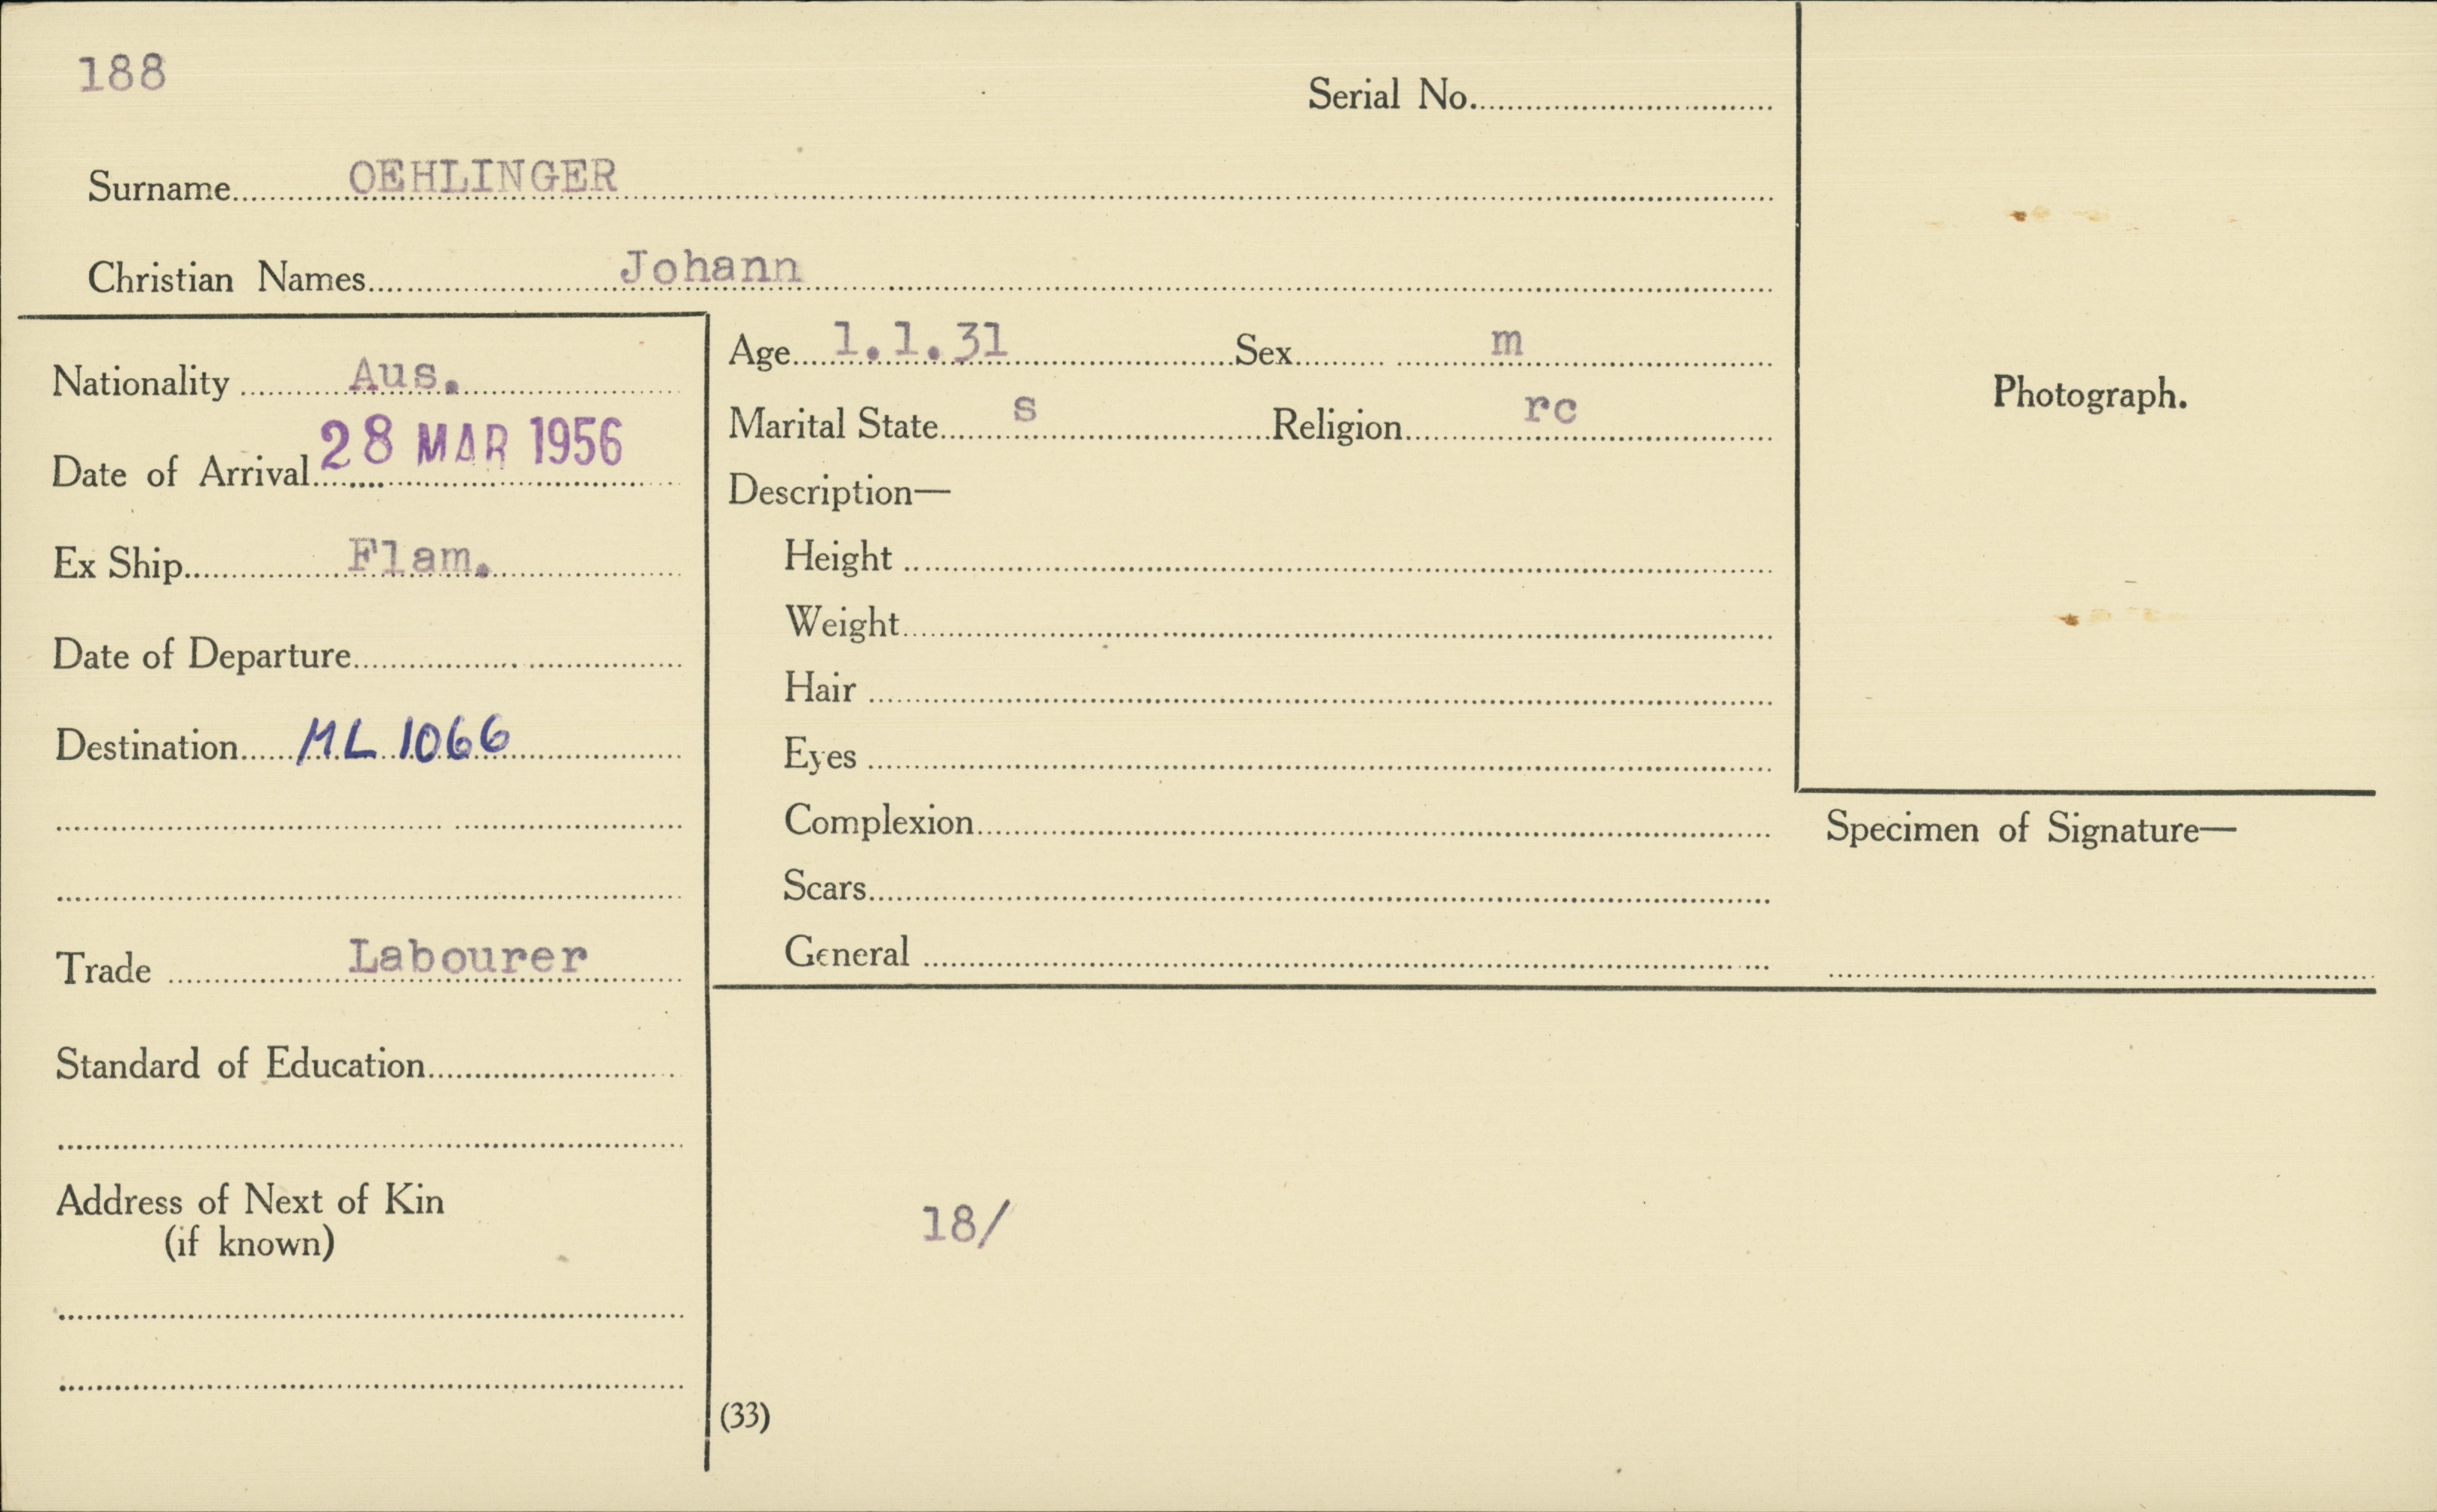 188
Serial No.
Surname OEHLINGER
Christian Names Johann
Nationality Aus.
Date of Arrival 28 MAR 1956
Ex Ship Flam.
Date of Departure
Destination ML 1066
Trade Labourer
Standard of Education
Address of Next of Kin
(if known)
Age 1.1.31 Sex m
Marital State s Religion rc
Description—
Height
Weight
Hair
Eyes
Complexion
Scars
General
Photograph.
Specimen of Signature—
18/
(33)